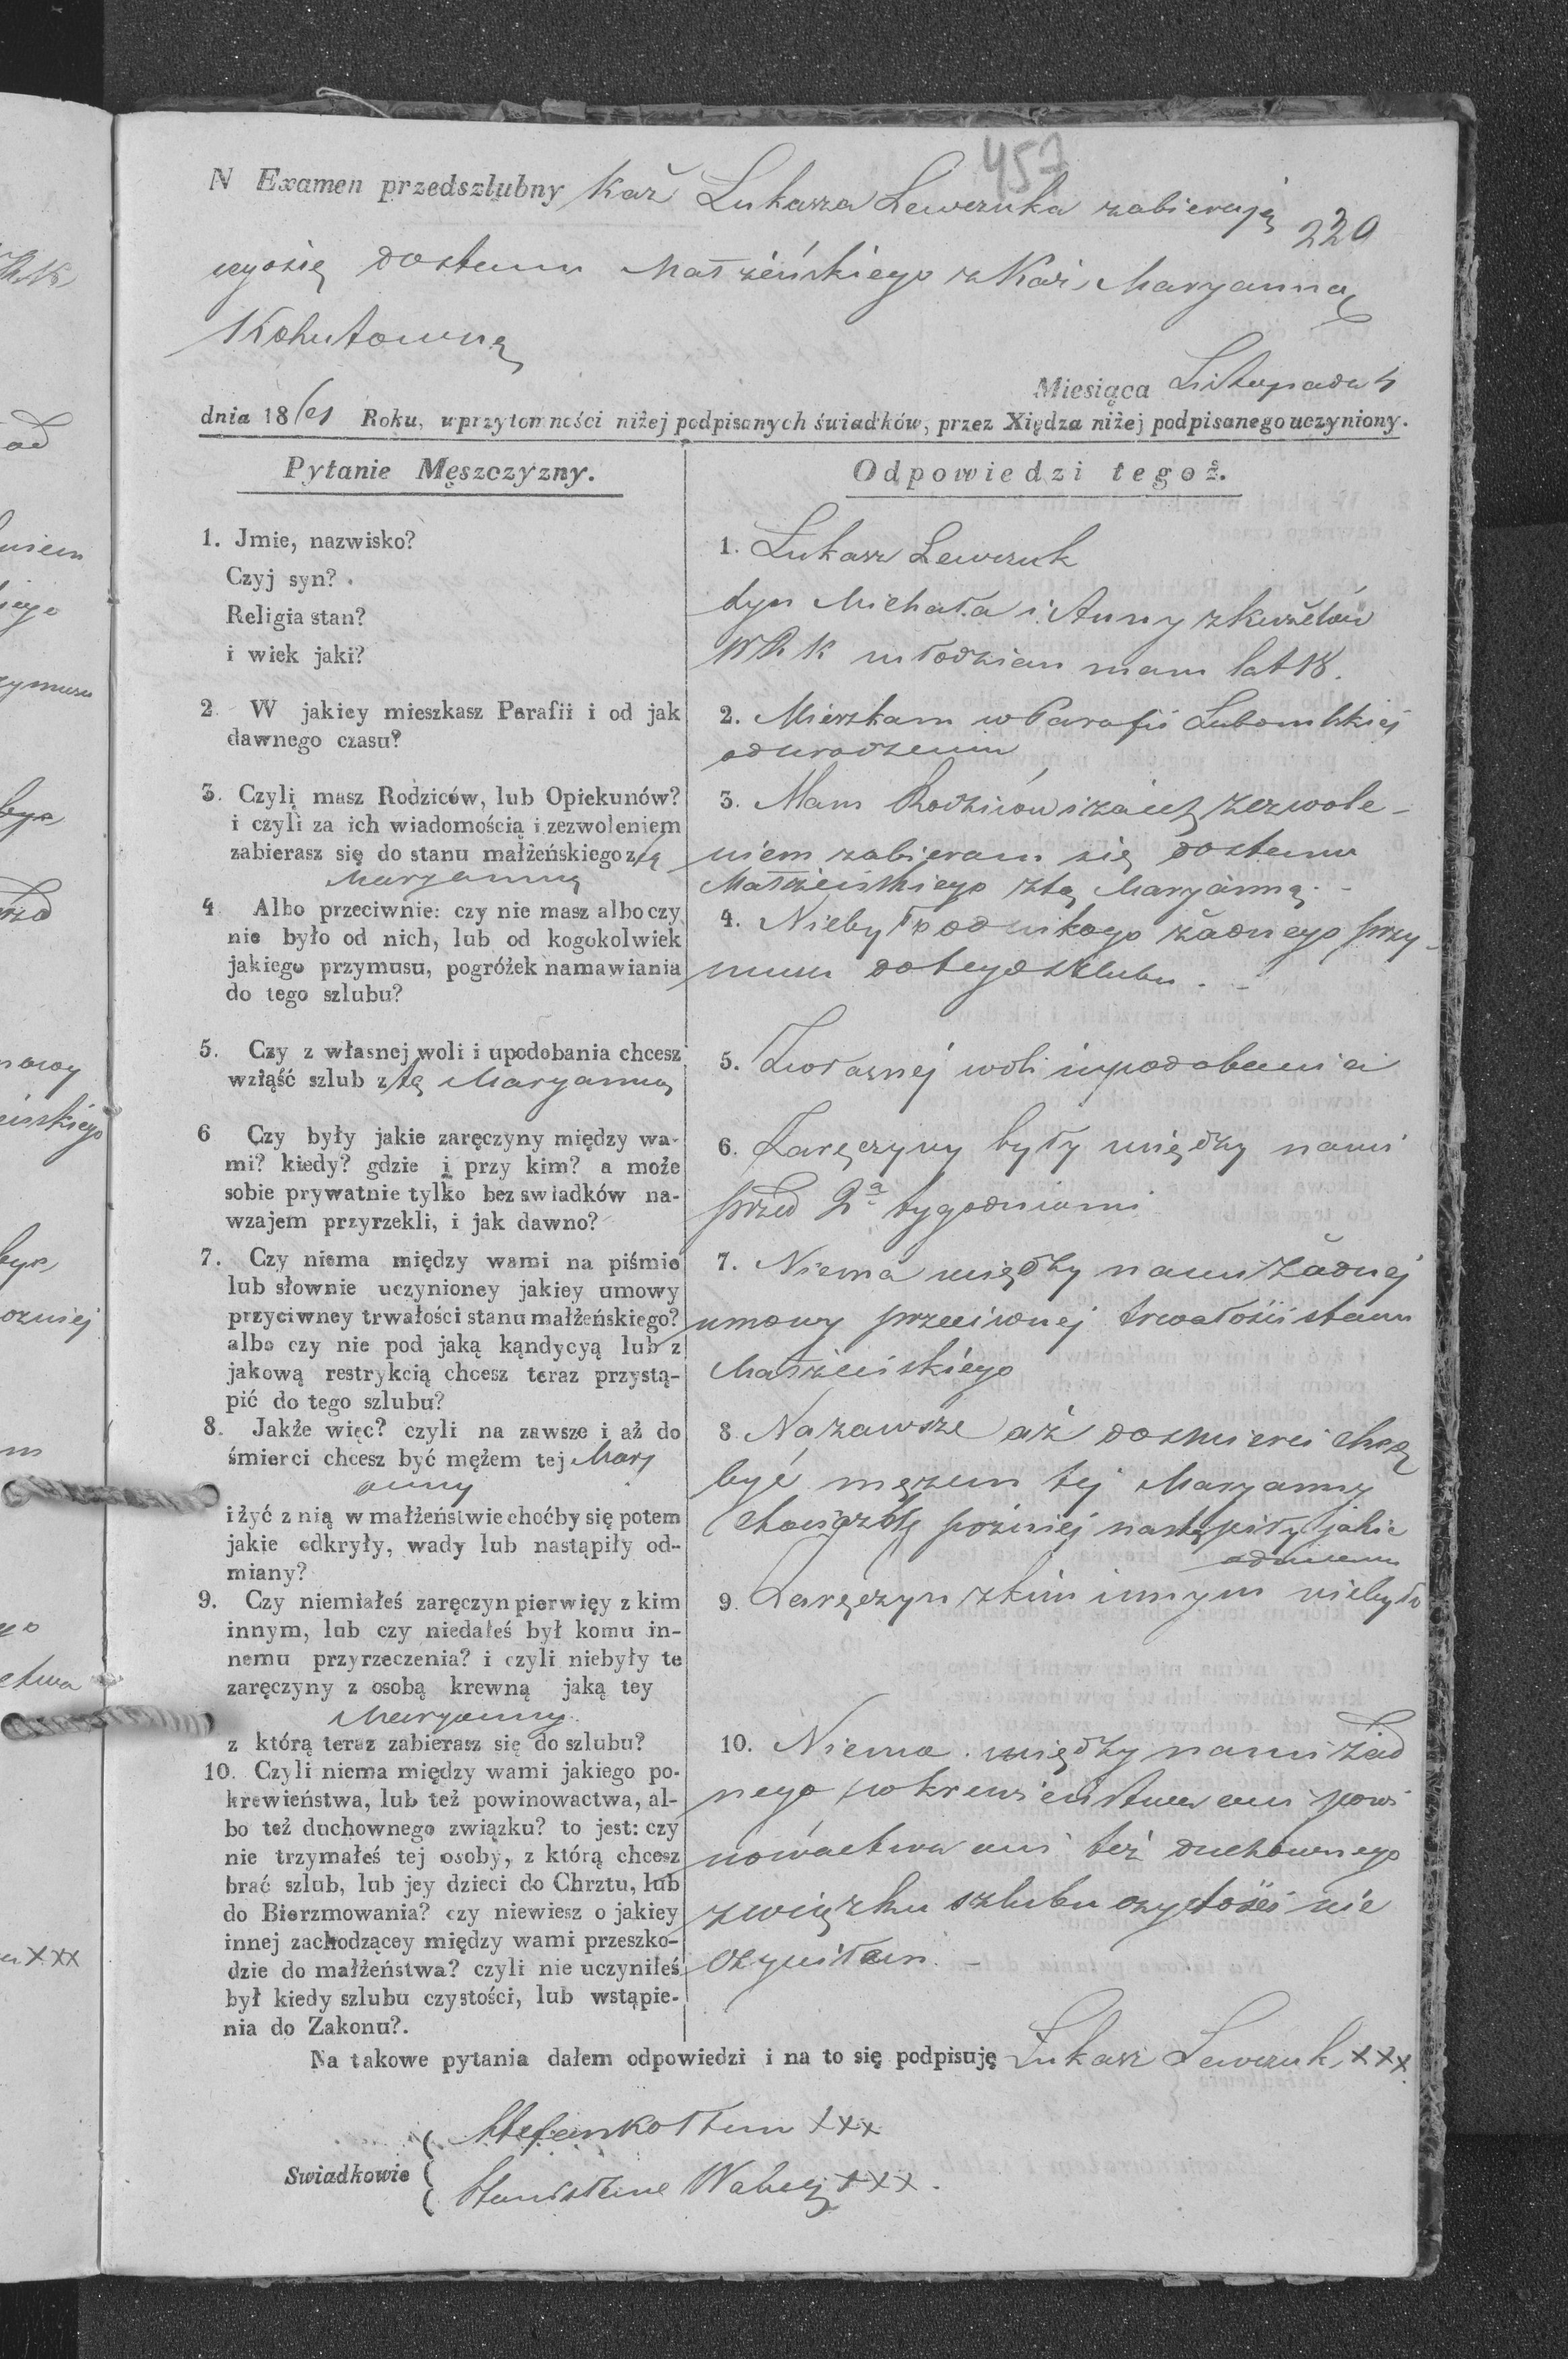 457
N Examen przedszlubny Kaź Łukasza Lewczuka zabierają
220
cego się do stanu Małżeńskiego z Kaź. Maryanną
Kohutowną
Miesiąca Listopada 4
dnia 1861 Roku, w przytomności niżej podpisanych świadków, przez Xiędza niżej podpisanego uczyniony.
Pytanie Męszczyzny.
1. Jmie, nazwisko?
Czyj syn?
Religia stan?
i wiek jaki?
2. W jakiey mieszkasz Parafii i od jak
dawnego czasu?
3. Czyli masz Rodziców, lub Opiekunów?
i czyli za ich wiadomością i zezwoleniem
zabierasz się do stanu małżeńskiego z tą
Maryanną
4. Albo przeciwnie: czy nie masz albo czy
nie było od nich, lub od kogokolwiek
jakiego przymusu, pogróżek namawiania
do tego szlubu?
5. Czy z własnej woli i upodobania chcesz
wziąść szlub z tą Maryanną
6 Czy były jakie zaręczyny między wa-
mi? kiedy? gdzie i przy kim? a może
sobie prywatnie tylko bez swiadków na-
wzajem przyrzekli, i jak dawno?
7. Czy niema między wami na piśmie
lub słownie uczynioney jakiey umowy
przyciwney trwałości stanu małżeńskiego?
albo czy nie pod jaką kąndycyą lub z
jakową restrykcią chcesz teraz przystą-
pić do tego szlubu?
8. Jakże więc? czyli na zawsze i aż do
śmierci chcesz być mężem tej Mary
anny
i żyć z nią w małżeństwie choćby się potem
jakie odkryły, wady lub nastąpiły od-
miany?
9. Czy niemiałeś zaręczyn pierwięy z kim
innym, lub czy niedałeś był komu in-
nemu przyrzeczenia? i czyli niebyły te
zaręczyny z osobą krewną jaką tey
Maryanny
z którą teraz zabierasz się do szlubu?
10. Czyli niema między wami jakiego po-
krewieństwa, lub też powinowactwa, al-
bo też duchownego związku? to jest: czy
nie trzymałeś tej osoby, z którą chcesz
brać szlub, lub jey dzieci do Chrztu, lub
do Bierzmowania? czy niewiesz o jakiey
innej zachodzącey między wami przeszko-
dzie do małżeństwa? czyli nie uczyniłeś
był kiedy szlubu czystości, lub wstąpie-
nia do Zakonu?.
Odpowiedzi tegoż.
1. Łukasz Lewczuk
syn Michała i Anny z
W R K młodzian mam lat 18.
2. Mieszkam w Parafii Lubomlskiej
od urodzenia
3. Mam Rodziców i za ich zezwole-
niem zabieram się do stanu
Małżeńskiego z tą Maryanną. -
4. Niebyło od nikogo żadnego przy-
musu do tego szlubu. -
5. Z własnej woli i upodobania
6. Zaręczyny były między nami
przed 2ª tygodniami
7. Niema między nami żadnej
umowy przeciwnej trwałości stanu
Małżeńskiego
8. Na zawsze aż do śmierci chcę
być mężem tej Maryanny
chociażby poźniej nastąpiły jakie
odmiany
9. Zaręczyn z kim innym niebyło
10. Niema między nami żad
nego pokrewieństwa ani powi
nowactwa ani też duchownego
związku szlubu czystości nie
czyniłem. -
Na takowe pytania dałem odpowiedzi i na to się podpisuję Łukasz Lewczuk xxx
Swiadkowie
Stefan Kołtun xxx
Stanisław xxx.